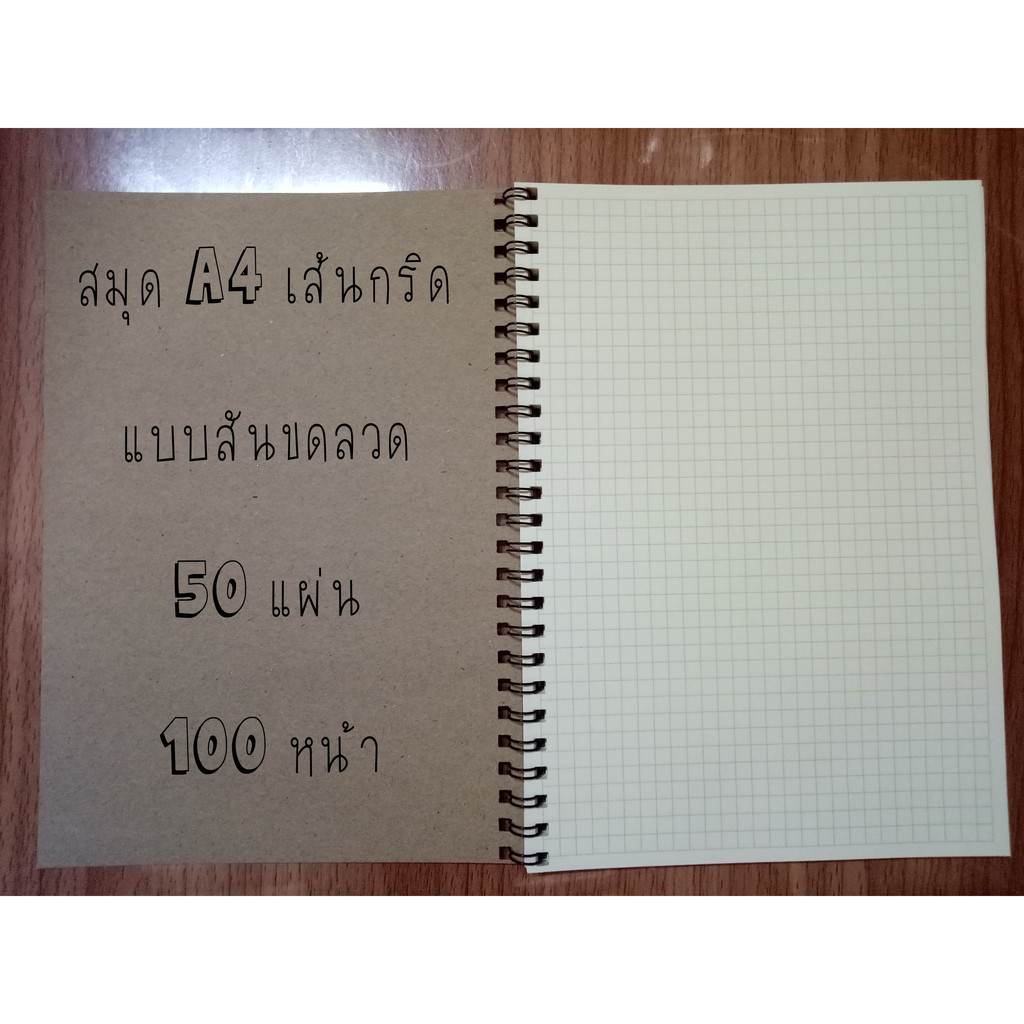 สมุด A4 เส้นกริด
แบบสันขดลวด
50 แผ่น
100 หน้า